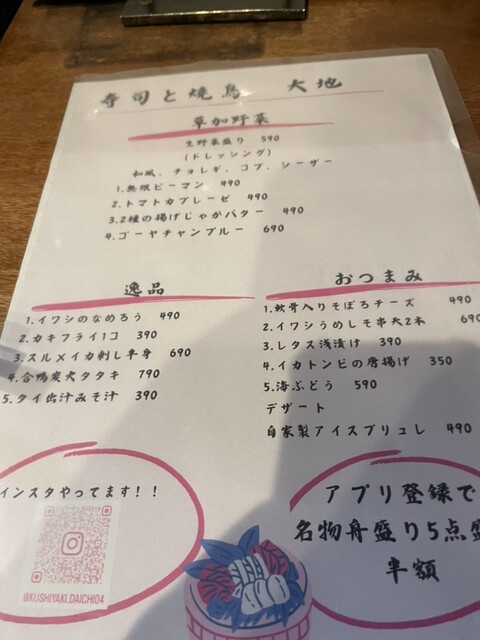 寿司と焼鳥 大地
草加野菜
生野菜盛り 590
(ドレッシング)
和風、チョレギ、コブ、シーザー
1.無限ピーマン 490
2.トマトカプレーゼ 490
3.2種の揚げじゃがバター 490
4.ゴーヤチャンプルー 690
逸品
1.イワシのなめろう 490
2.カキフライ1コ 390
3.スルメイカ刺し半身 690
4.合鴨炭火タタキ 790
5.タイ出汁みそ汁 390
おつまみ
1.軟骨入りそぼろチーズ 490
2.イワシうめしそ串天2本 690
3.レタス浅漬け 390
4.イカトンビの唐揚げ 350
5.海ぶどう 590
デザート
自家製アイスブリュレ 490
インスタやってます!!
@KUSHIYAKI.DAICHI04
アプリ登録で
名物舟盛り5点盛
半額